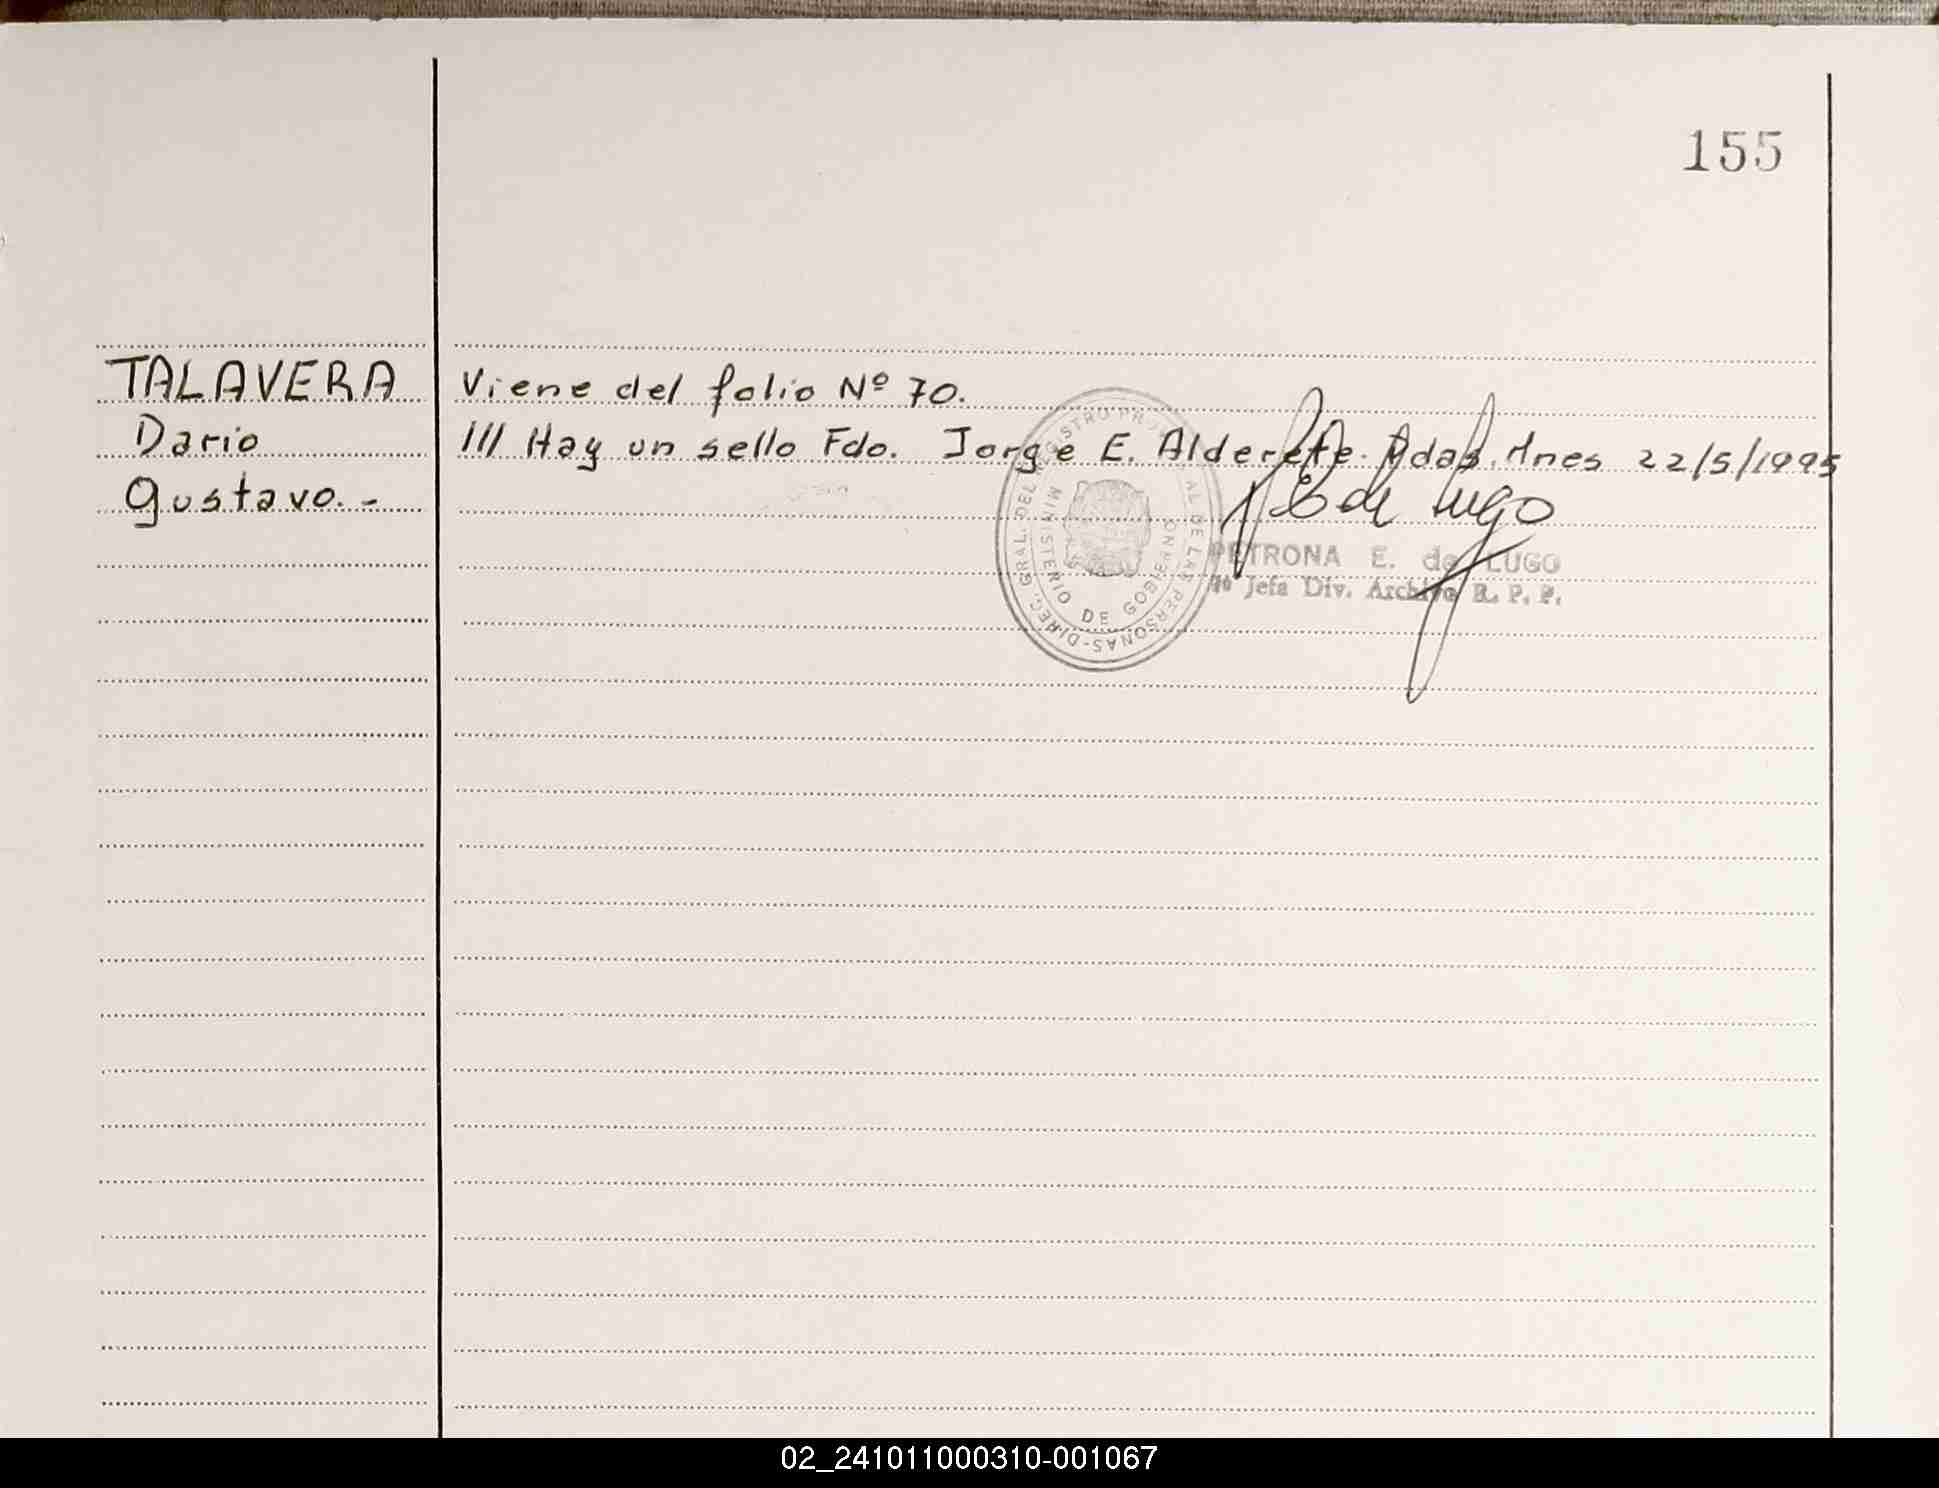 155
TALAVERA Viene del folio Nº 70.
Dario /// Hay un sello Fdo. Jorge E. Alderete. Pdas. Mnes 22/5/1995
Gustavo.-
E de Lugo
PETRONA E. de LUGO
Jefa Div. Archivo R. P. P.
DIREC. GRAL. DEL REGISTRO AL DE LAS PERSONAS-
MINISTERIO DE GOBIERNO
02_241011000310-001067